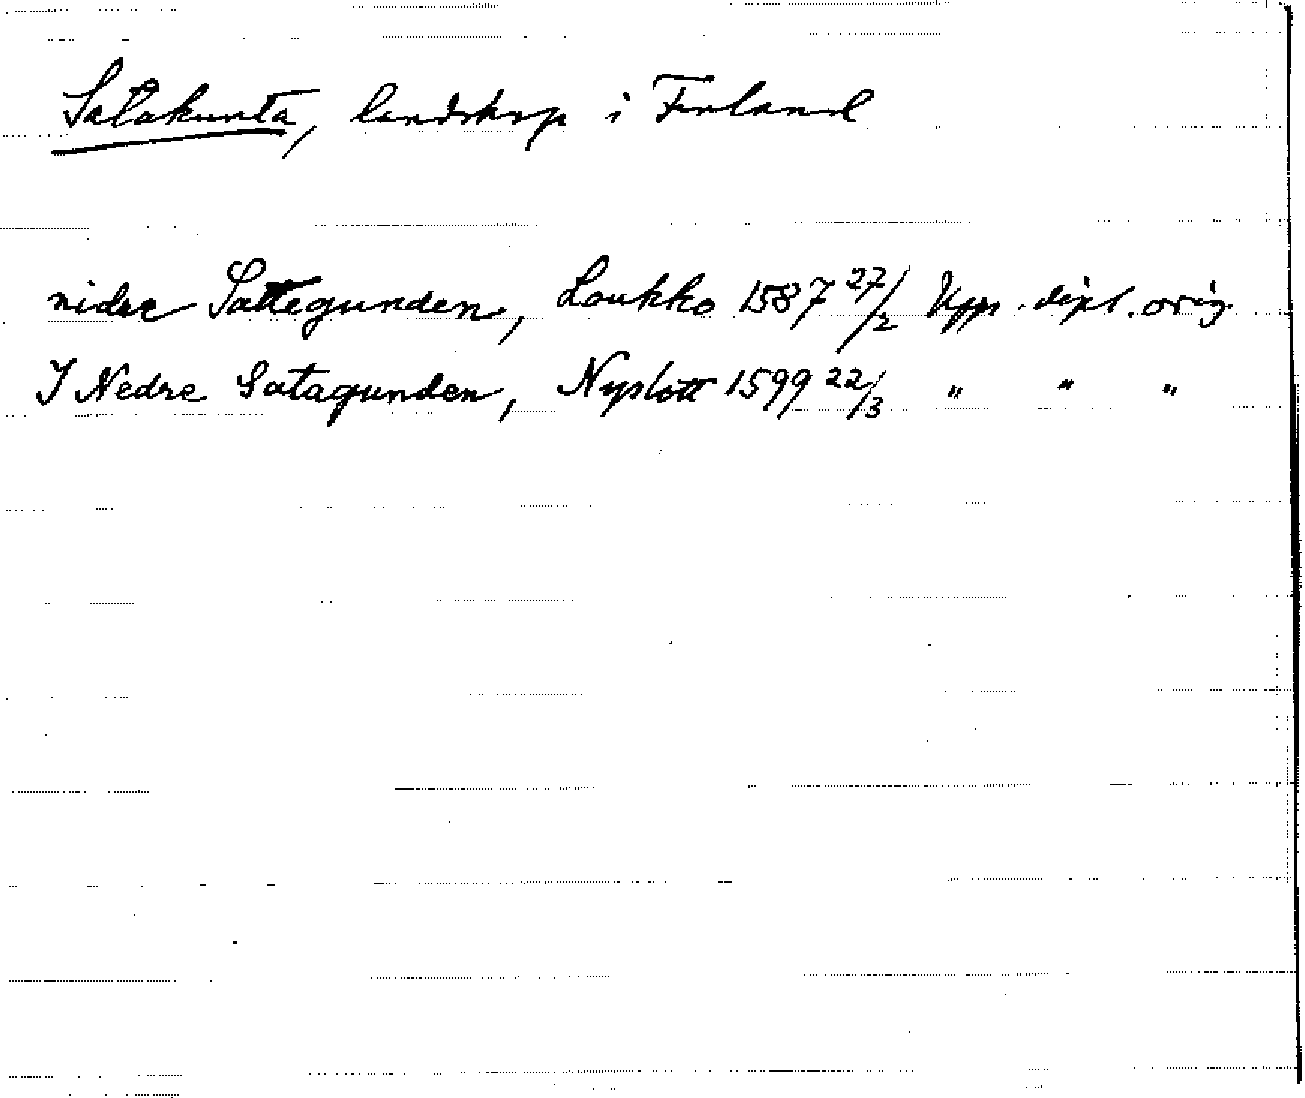 Satakunta, landskap i Finland
nidre Sattegunden, Loukko 1587 27/2 Upps. dipl. orig.
I Nedre Satagunden, Nyslott 1599 22/3 " " "